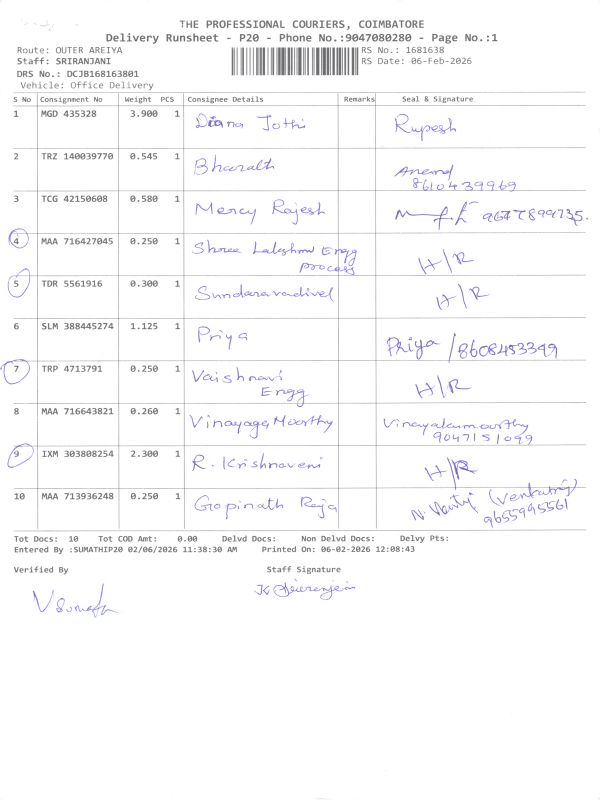 THE PROFESSIONAL COURIERS, COIMBATORE
Delivery Runsheet - P20 - Phone No.:9047080280 - Page No.:1
Route: OUTER AREIYA
RS No.: 1681638
Staff: SRIRANJANI
RS Date: 06-Feb-2026
DRS No.: DCJB168163801
Vehicle: Office Delivery
S No Consignment No Weight PCS Consignee Details Remarks Seal & Signature
1 MGD 435328 3.900 1 Diana Jothi Rupesh
2 TRZ 140039770 0.545 1 Bharath Anand
8610439969
3 TCG 42150608 0.580 1 Mercy Rajesh
4 MAA 716427045 0.250 1 Shree Lakshmi Engg
process H/R
5 TDR 5561916 0.300 1 Sundaravadivel H/R
6 SLM 388445274 1.125 1 Priya Priya / 8608453399
7 TRP 4713791 0.250 1 Vaishnavi
Engg H/R
8 MAA 716643821 0.260 1 Vinayaga Moorthy Vinayakumoorthy
9047151099
9 IXM 303808254 2.300 1 R. Krishnaveni H/R
10 MAA 713936248 0.250 1 Gopinath Raja (Venkatraj)
9655995561
Tot Docs: 10 Tot COD Amt: 0.00 Delvd Docs: Non Delvd Docs: Delvy Pts:
Entered By :SUMATHIP20 02/06/2026 11:38:30 AM Printed On: 06-02-2026 12:08:43
Verified By Staff Signature
V Sumathi